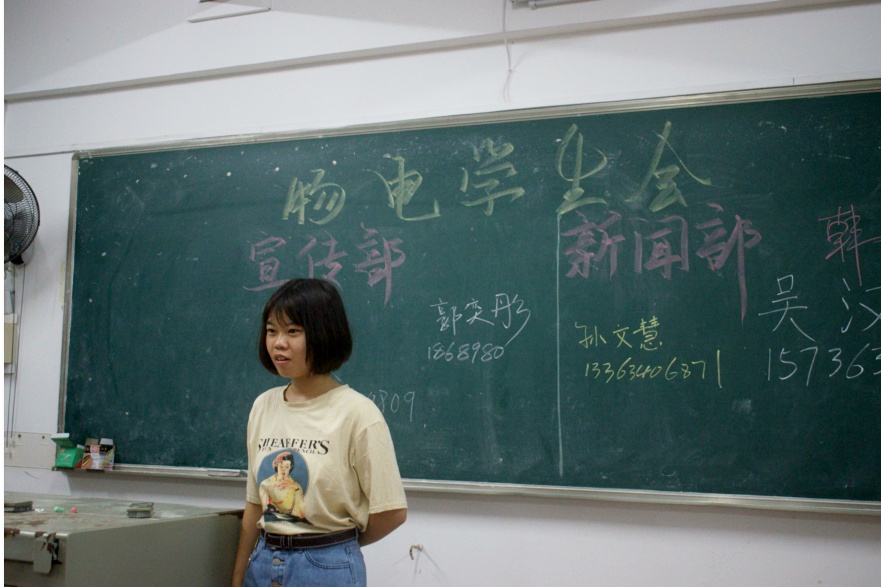 物电学生会
宣传部
新闻部
韩
郭奕彤
1868980
孙文慧
13363406871
吴汉
157363
809
SHEAFFER'S